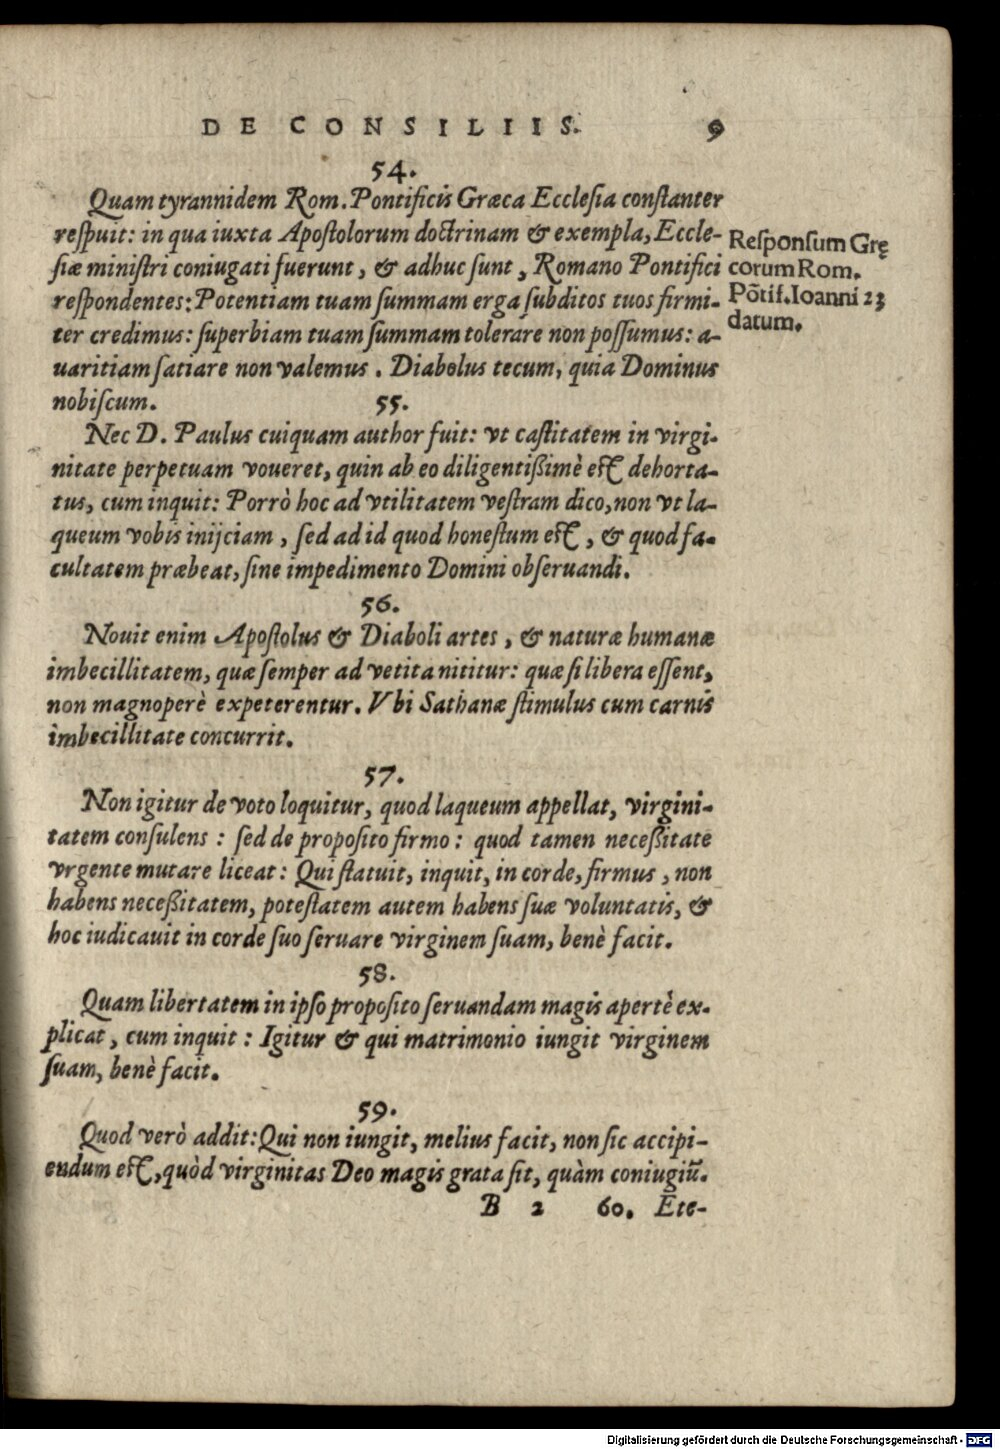 DE CONSILIIS. 9
54.
Quam tyrannidem Rom. Pontificis Græca Ecclesia constanter
respuit: in qua iuxta Apostolorum doctrinam & exempla, Eccle-
siæ ministri coniugati fuerunt, & adhuc sunt, Romano Pontifici
respondentes: Potentiam tuam summam erga subditos tuos firmi-
ter credimus: superbiam tuam summam tolerare non possumus: a-
uaritiam satiare non valemus. Diabolus tecum, quia Dominus
nobiscum.
Responsum Grę
corum Rom.
Põtif. Ioanni 23
datum.
55.
Nec D. Paulus cuiquam author fuit: vt castitatem in virgi-
nitate perpetuam voueret, quin ab eo diligentißimè est dehorta-
tus, cum inquit: Porrò hoc ad vtilitatem vestram dico, non vt la-
queum vobis inijciam, sed ad id quod honestum est, & quod fa-
cultatem præbeat, sine impedimento Domini obseruandi.
56.
Nouit enim Apostolus & Diaboli artes, & naturæ humanæ
imbecillitatem, quæ semper ad vetita nititur: quæ si libera essent,
non magnoperè expeterentur. Vbi Sathanæ stimulus cum carnis
imbecillitate concurrit.
57.
Non igitur de voto loquitur, quod laqueum appellat, virgini-
tatem consulens: sed de proposito firmo: quod tamen neceßitate
vrgente mutare liceat: Qui statuit, inquit, in corde, firmus, non
habens neceßitatem, potestatem autem habens suæ voluntatis, &
hoc iudicauit in corde suo seruare virginem suam, benè facit.
58.
Quam libertatem in ipso proposito seruandam magis apertè ex-
plicat, cum inquit: Igitur & qui matrimonio iungit virginem
suam, benè facit.
59.
Quod verò addit: Qui non iungit, melius facit, non sic accipi-
endum est, quòd virginitas Deo magis grata sit, quàm coniugiũ.
B 2 60. Ete-
Digitalisierung gefördert durch die Deutsche Forschungsgemeinschaft - DFG